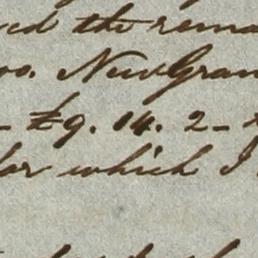 the rema
oo. New Gran
- £9. 14. 2 -
for which I